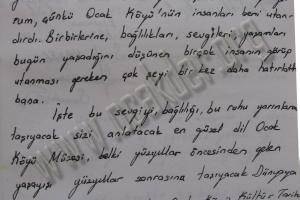 rum, çünkü Ocak Köyü'nün insanları beni utan
dırdı. Birbirlerine, bağlılıkları, sevgileri, yaşamları
bugün yaşadığını düşünen birçok insanın görüp
utanması gereken çok şeyi bir kez daha hatırlattı
bana.
İşte bu sevgiyi, bağlılığı, bu ruhu yarınlara
taşıyacak sizi anlatacak en güzel dil Ocak
Köyü Müzesi, belki yüzyıllar öncesinden gelen
yaşayışı yüzyıllar sonrasına taşıyacak Dünyaya
Köyü Kültür Tarihi